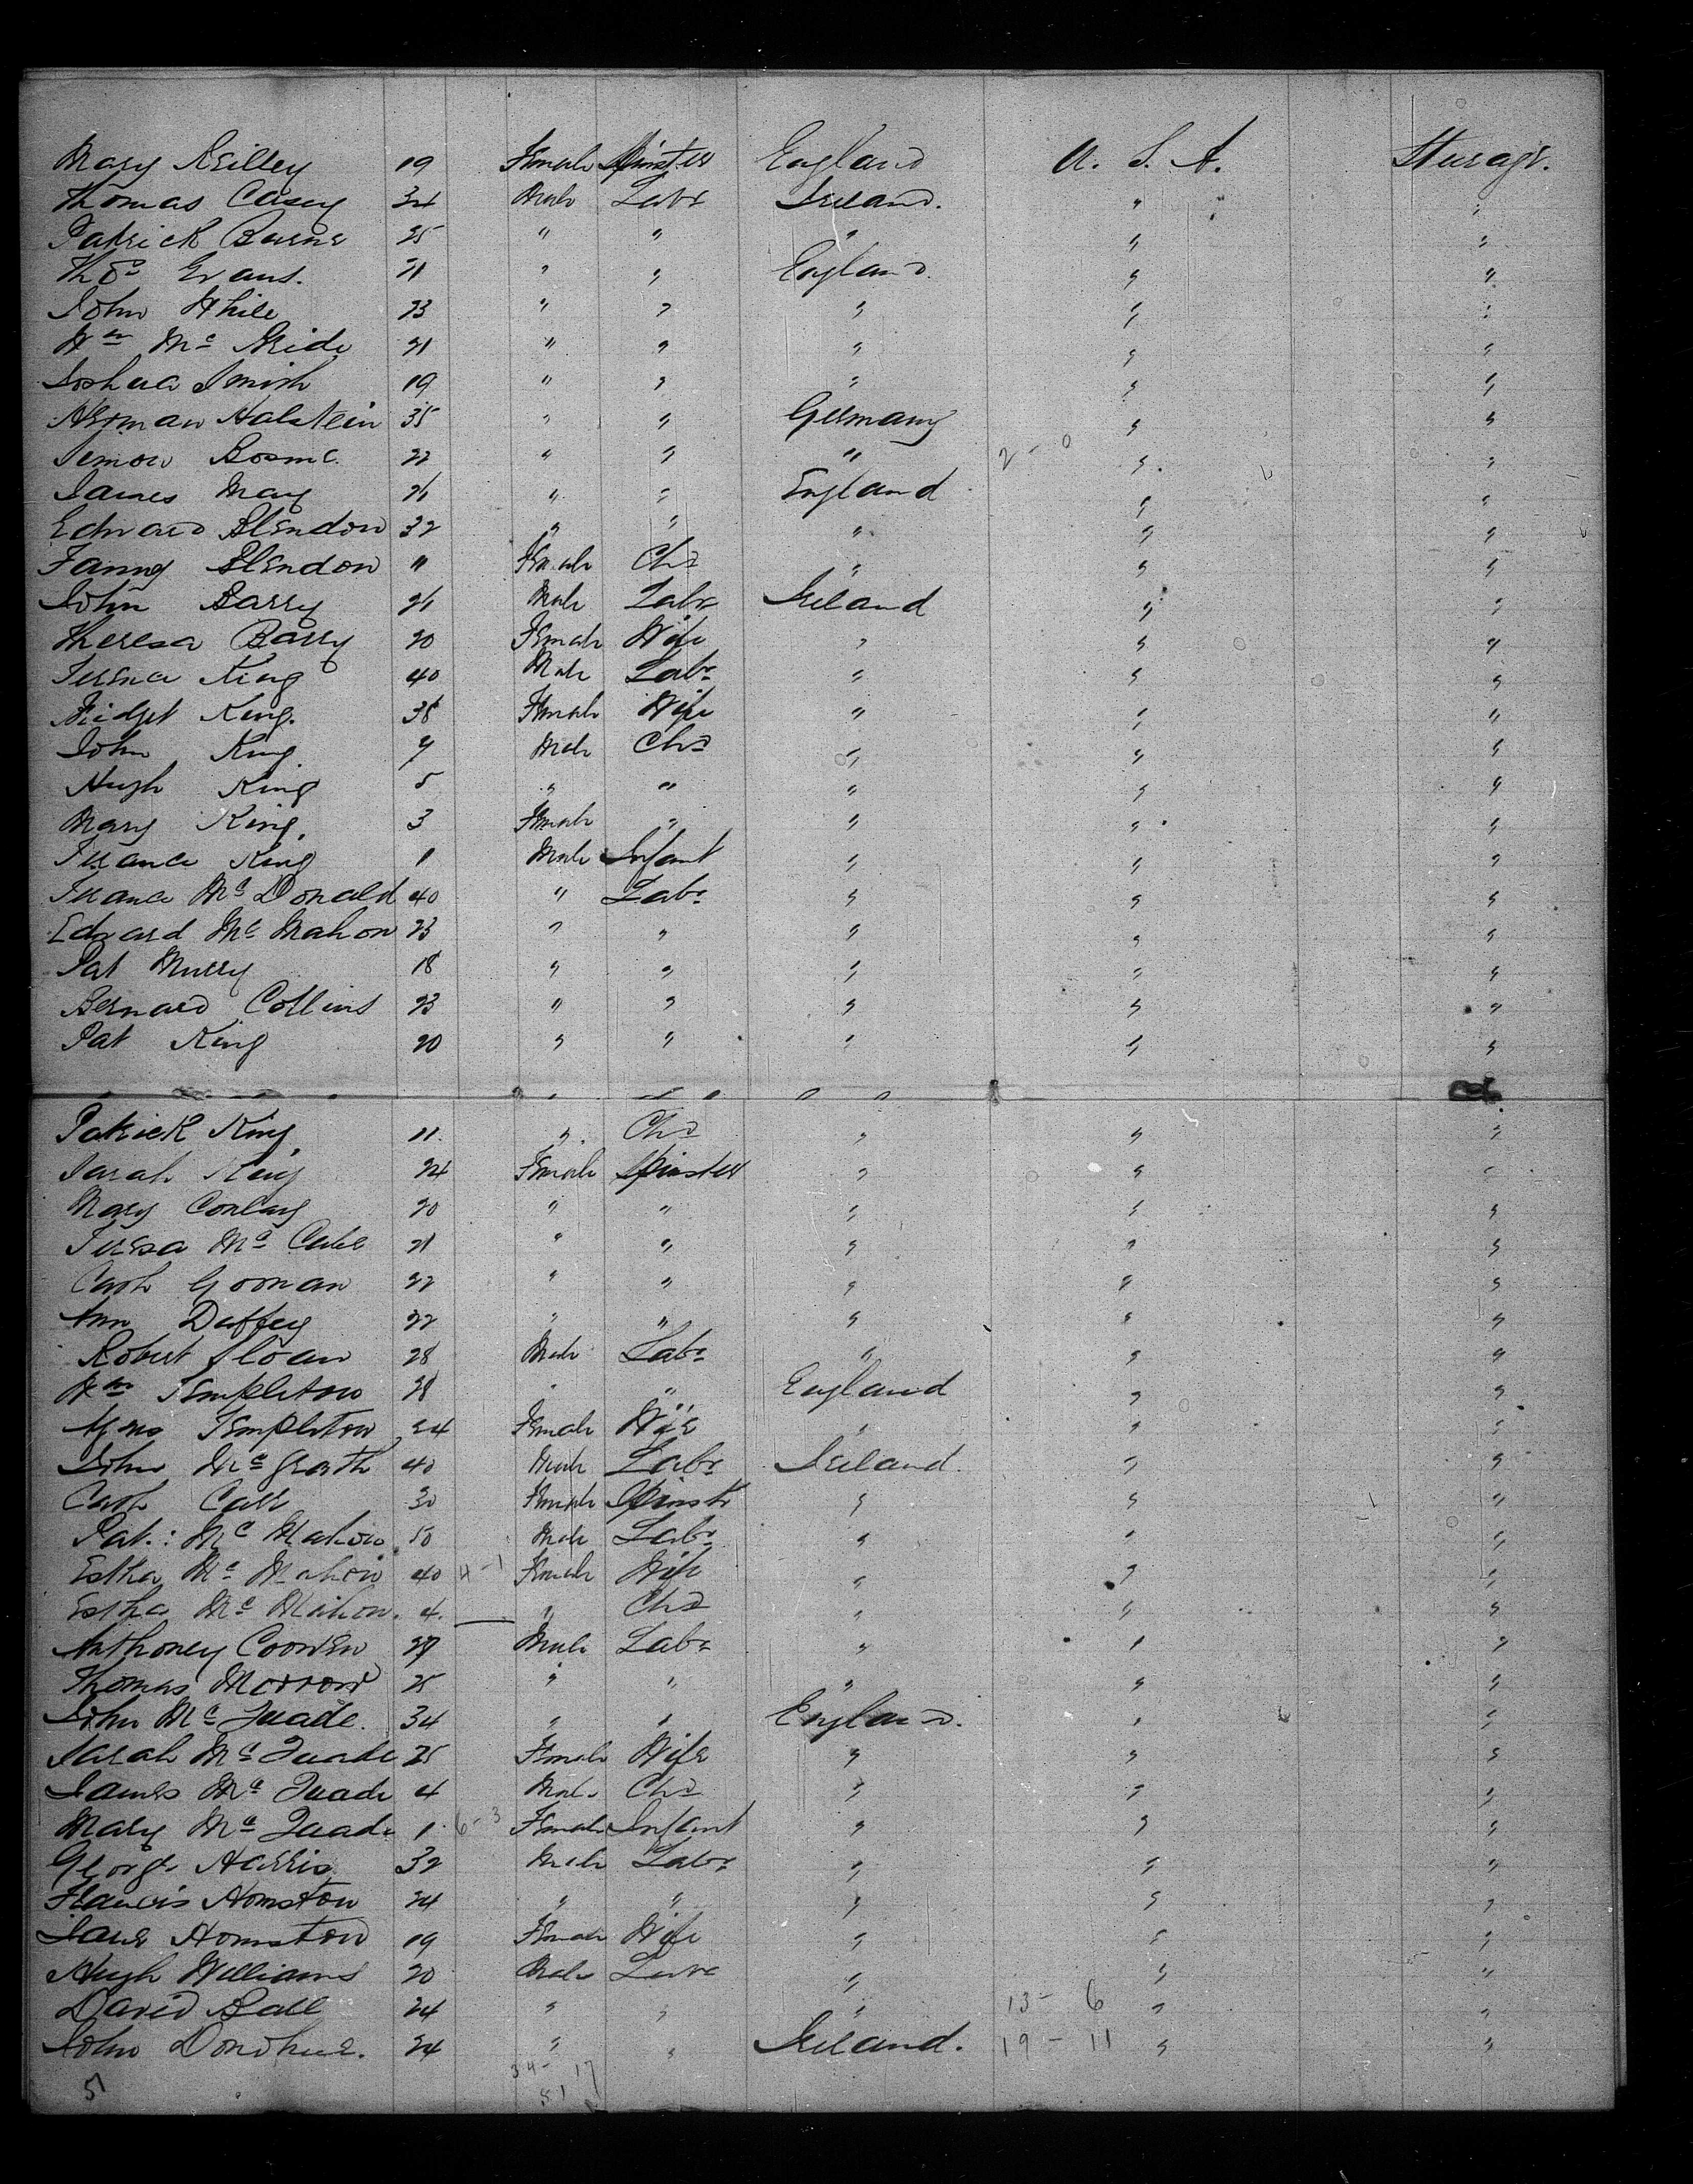 Mary Reilley 19 Female Spinster England U. S. A. Sturage.
Thomas Casey 34 Male Labr Ireland. " "
Patrick Burns 25 " " " " "
Thos Evans. 21 " " England. " "
John White 23 " " " " "
Wm Mc Bride 21 " " " " "
Joshua Smith 19 " " " " "
Herman Halstein 35 " " Germany " "
Simon 22 " " " 2 - 0 " "
James May 26 " " England " "
Edward Blendon 32 " " " " "
Fanny Blendon 11 Female Chd " " "
John Barry 26 Male Labr Ireland " "
Theresa Barry 20 Female Wife " " "
King 40 Male Labr " " "
Bridget King. 38 Female Wife " " "
John King 7 Male Chd " " "
Hugh King 5 " " " " "
Mary King. 3 Female " " " "
King 1 Male Infant " " "
Mc Donald 40 " Labr " " "
Edward Mc Mahon 23 " " " " "
Pat Murry 18 " " " " "
Bernard Collins 23 " " " " "
Pat King 20 " " " " "
Patrick King 11. " Chd " " "
Sarah King 24 Female Spinster " " "
Mary Conlay 20 " " " " "
Teresa Mc Cabe 21 " " " " "
Cath Goonan 22 " " " " "
Ann Duffey 22 " " " " "
Robert Sloan 28 Male Labr " " "
Wm Templeton 28 " " England " "
Agnes Templeton 24 Female Wife " " "
John Mc Grath 40 Male Labr Ireland. " "
Cath Carr 30 Female Spinstr " " "
Pat: Mc Mahon 50 Male Labr " " "
Estha Mc Mahon 40 4 - 1 Female Wife " " "
Estha Mc Mahon. 4. " Chd " " "
Anthoney 27 Male Labr " " "
Thomas Morrow 25 " " " " "
John Mc Quade. 34 " " England. " "
Sarah Mc Quade 25 Female Wife " " "
James Mc Quade 4 Male Chd " " "
Mary Mc Quade 1 6 - 3 Female Infant " " "
George Harris 32 Male Labr " " "
Francis Homston 24 " " " " "
Jane Homston 19 Female Wife " " "
Hugh Williams 20 Male Labr " " "
David Ball 24 " " " 13 - 6 " "
John Donohue. 24 " " Ireland. 19 - 11 " "
34 - 17
51 51